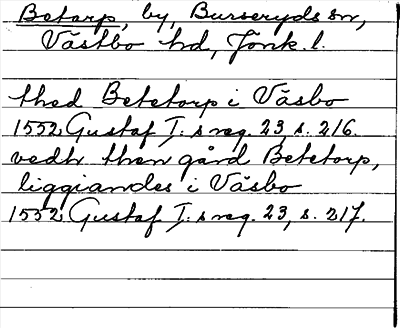 Betarp, by, Burseryds sn,
Västbo hd, Jönk. l.
thed Betetorp i Väsbo
1552 Gustaf I:s reg. 23, s. 216.
vedh then gård Betetorp,
liggiandes i Väsbo
1552 Gustaf I:s reg. 23, s. 217.